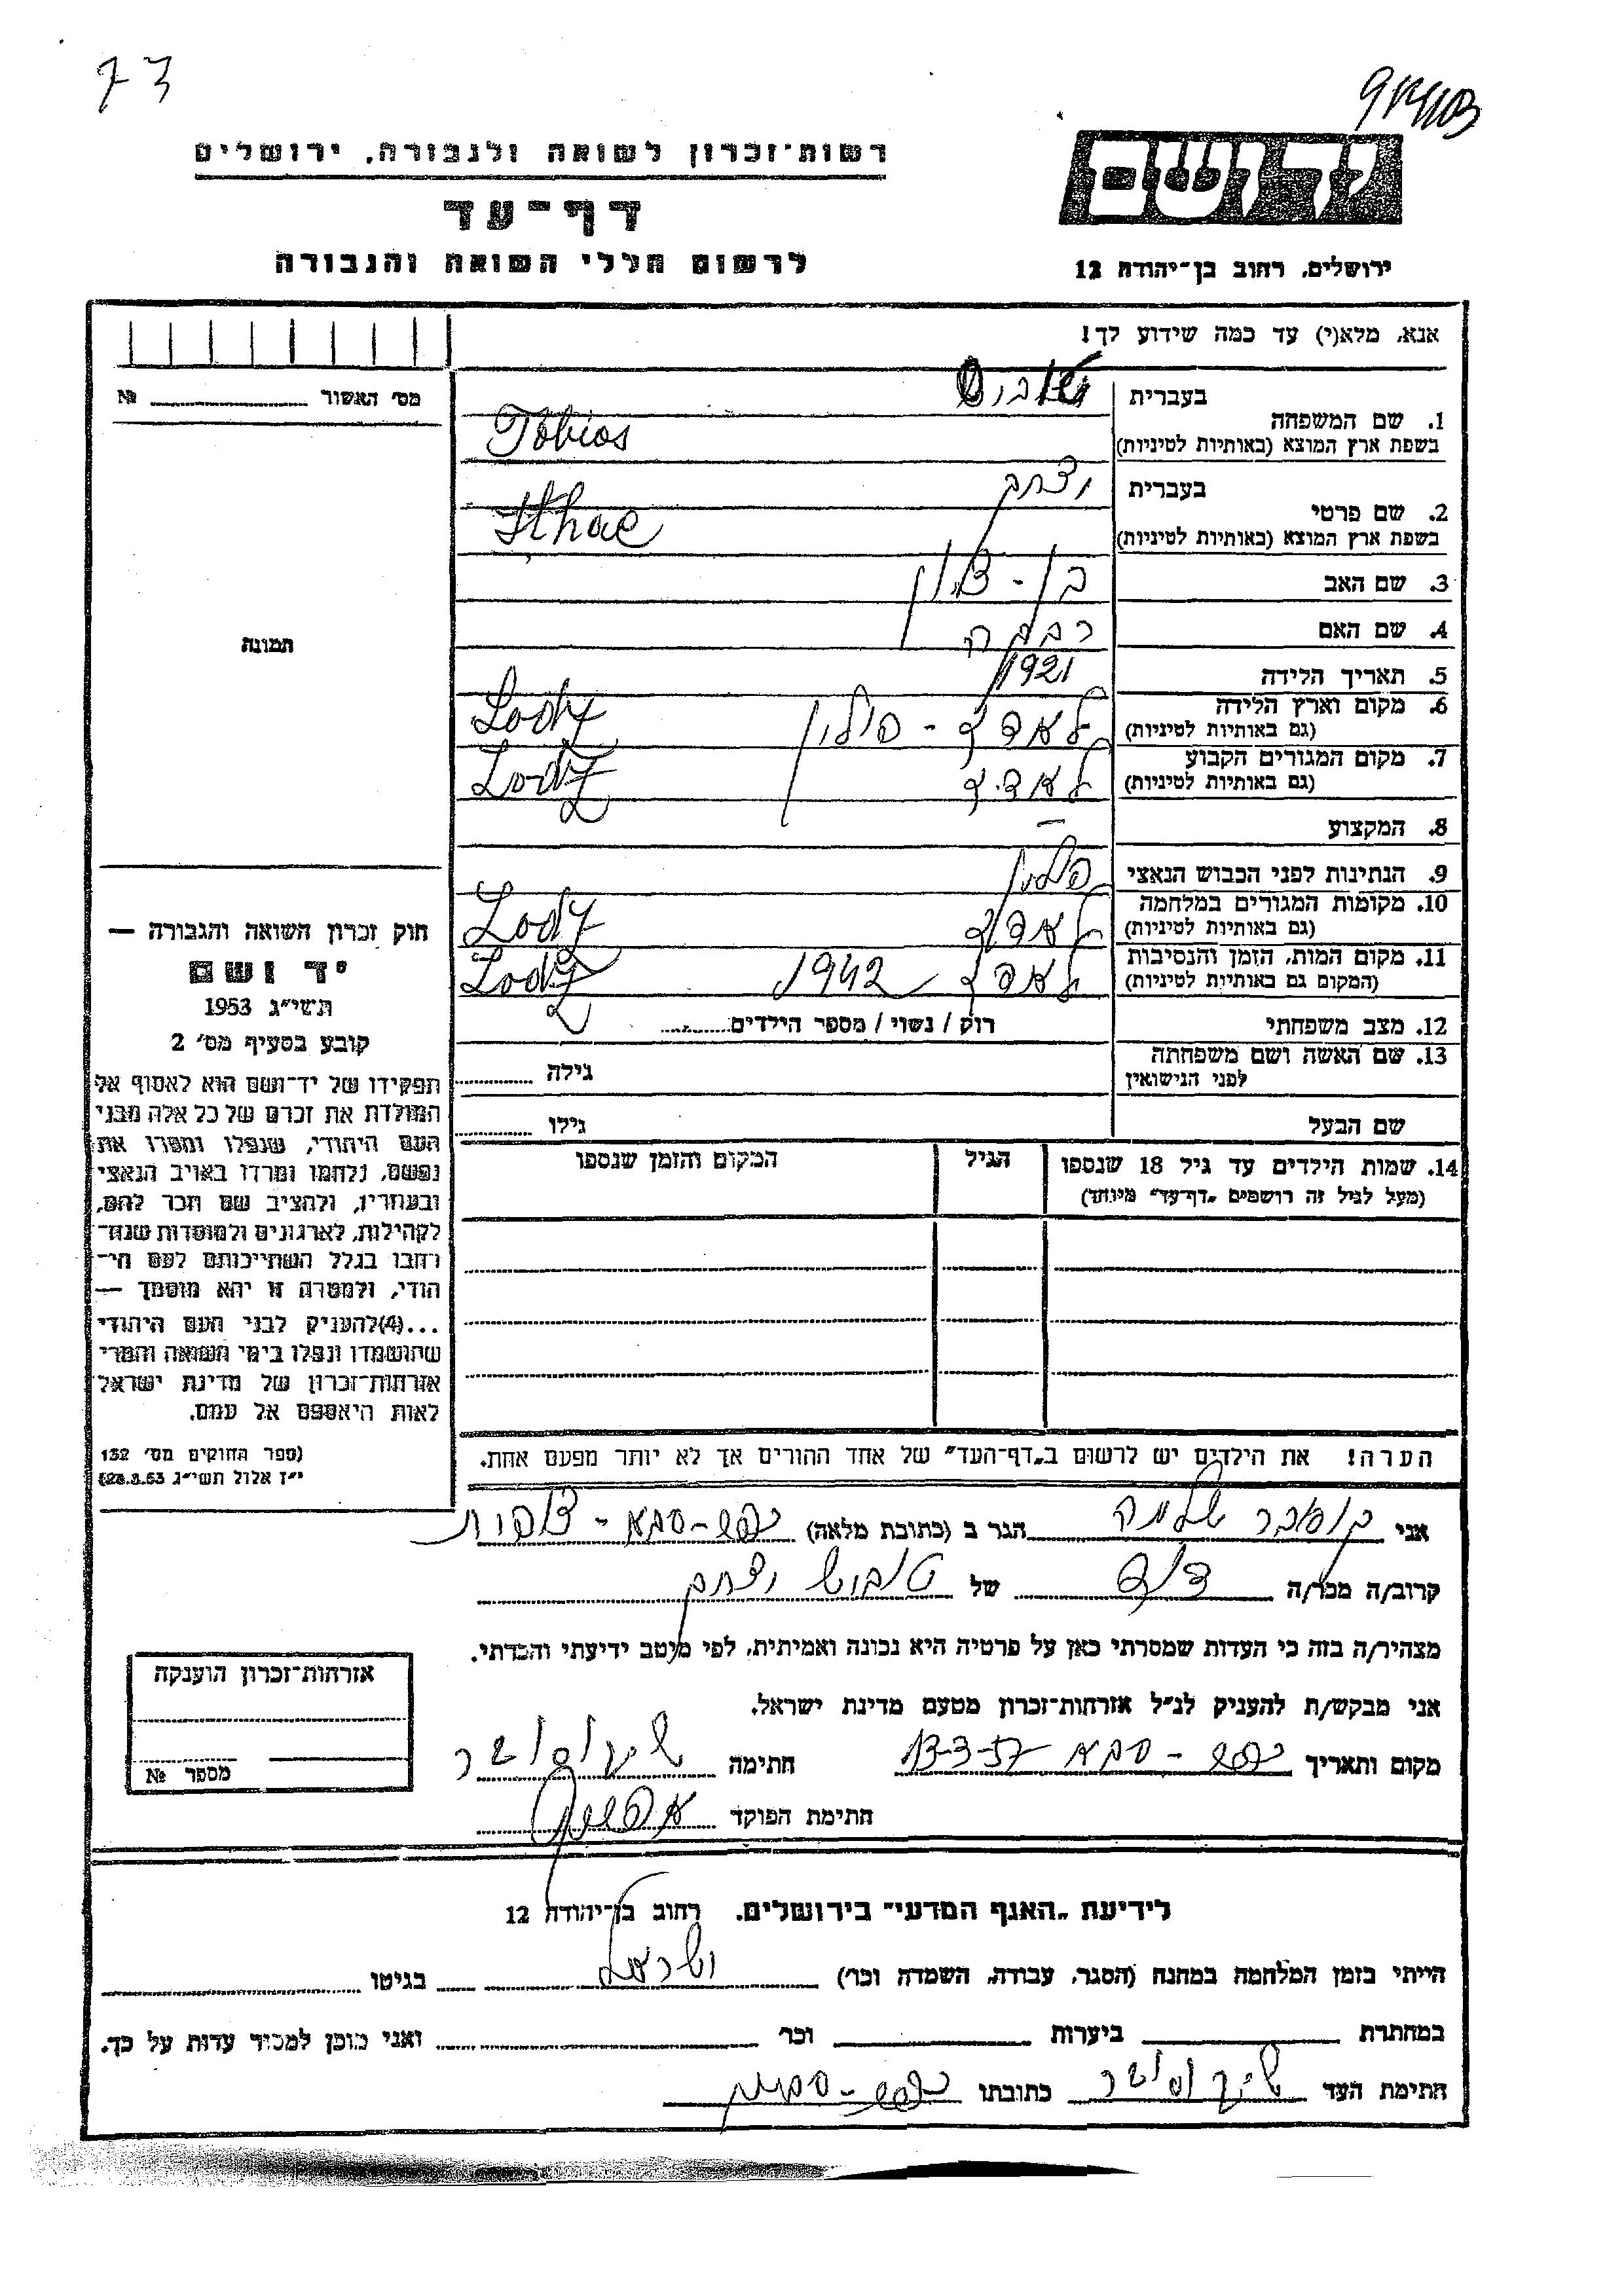 73
רשות־זכרון לשואה ולגבורה, ירושלים
דף־עד
לרשום חללי השואה והגבורה
יד ושם
ירושלים, רחוב בן־יהודה 12
אנא, מלא(י) עד כמה שידוע לך!
מס׳ האשור № 
בעברית
1. שם המשפחה
בשפת ארץ המוצא (באותיות לטיניות) Tobios
בעברית יצחק
2. שם פרטי
בשפת ארץ המוצא (באותיות לטיניות) Ithac
3. שם האב בן-ציון
4. שם האם רבקה
5. תאריך הלידה 1921
6. מקום וארץ הלידה לאדז - פולין Lodz
(גם באותיות לטיניות)
7. מקום המגורים הקבוע לאדז Lodz
(גם באותיות לטיניות)
8. המקצוע —
9. הנתינות לפני הכבוש הנאצי
10. מקומות המגורים במלחמה לאדז Lodz
(גם באותיות לטיניות)
11. מקום המות, הזמן והנסיבות לאדז 1942 Lodz
(המקום גם באותיות לטיניות)
12. מצב משפחתי רוק / נשוי / מספר הילדים
13. שם האשה ושם משפחתה
לפני הנישואין גילה
שם הבעל גילו
14. שמות הילדים עד גיל 18 שנספו הגיל המקום והזמן שנספו
(מעל לגיל זה רושמים „דף־עד״ מיוחד)
הערה! את הילדים יש לרשום ב„דף־העד״ של אחד ההורים אך לא יותר מפעם אחת.
תמונה
חוק זכרון השואה והגבורה —
יד ושם
תשי״ג 1953
קובע בסעיף מס׳ 2
תפקידו של יד־ושם הוא לאסוף אל
המולדת את זכרם של כל אלה מבני
העם היהודי, שנפלו ומסרו את
נפשם, נלחמו ומרדו באויב הנאצי
ובעוזריו, ולהציב שם וזכר להם,
לקהילות, לארגונים ולמוסדות שנח־
רבו בגלל השתייכותם לעם הי־
הודי, ולמטרה זו יהא מוסמך —
...(4)להעניק לבני העם היהודי
שהושמדו ונפלו בימי השואה והמרי
אזרחות־זכרון של מדינת ישראל
לאות היאספם אל עמם.
(ספר החוקים מס׳ 132
י״ז אלול תשי״ג 28.8.53)
אני שלמה הגר ב (כתובת מלאה) כפר-סבא -
קרוב/ה מכר/ה דוד של טוביש יצחק
מצהיר/ה בזה כי העדות שמסרתי כאן על פרטיה היא נכונה ואמיתית, לפי מיטב ידיעתי והכרתי.
אני מבקש/ת להעניק לנ״ל אזרחות־זכרון מטעם מדינת ישראל.
מקום ותאריך כפר-סבא 13-3-57 חתימה
חתימת הפוקד
אזרחות־זכרון הוענקה
מספר №
לידיעת „האגף המדעי״ בירושלים. רחוב בן־יהודה 12
הייתי בזמן המלחמה במחנה (הסגר, עבודה, השמדה וכר׳) ישראל בגיטו
במחתרת ביערות וכר׳ ואני מוכן למסור עדות על כך.
חתימת העד כתובתו כפר-סבא